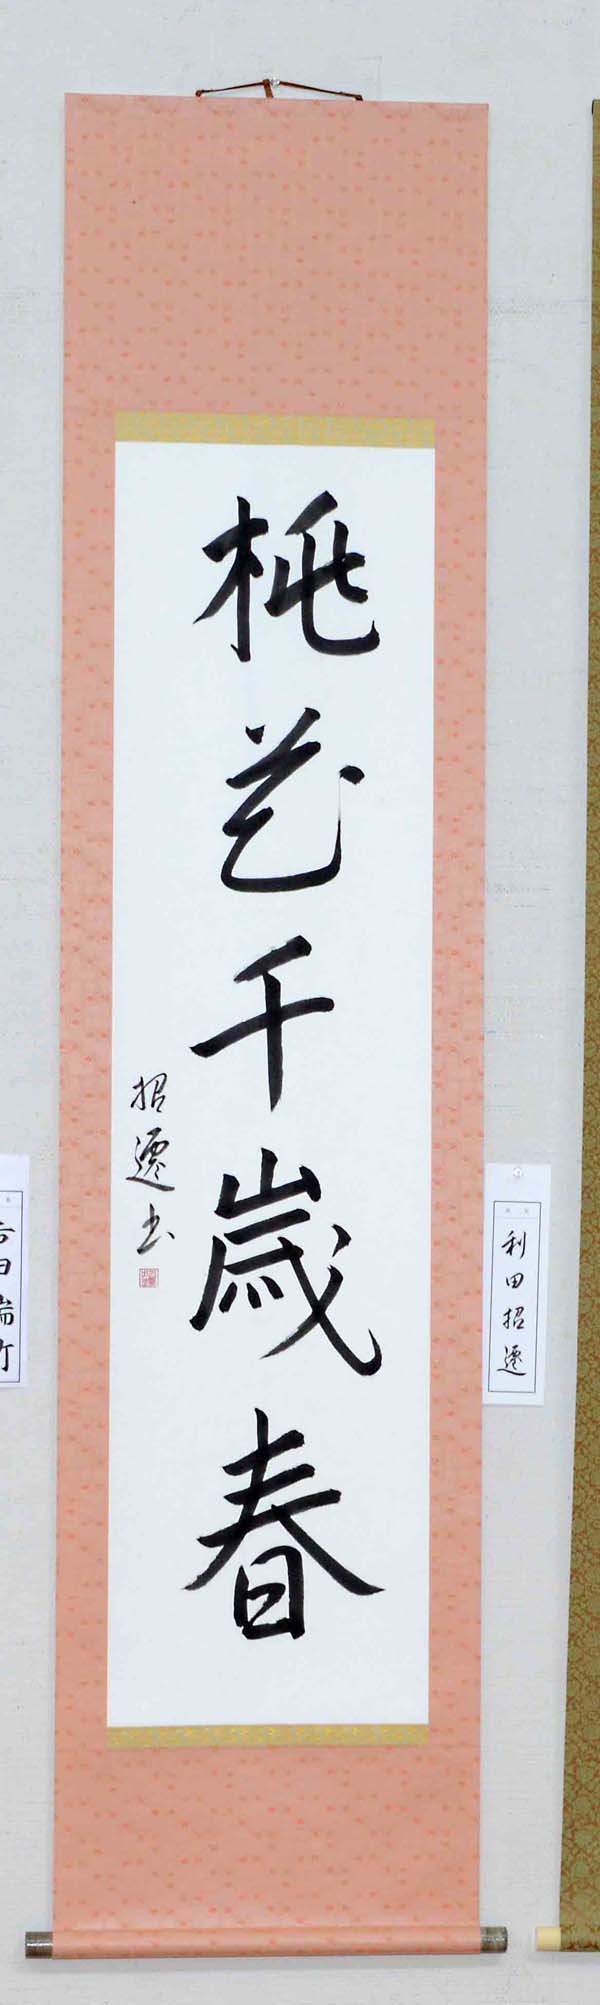 桃花千歳春
招遷書
利田招遷